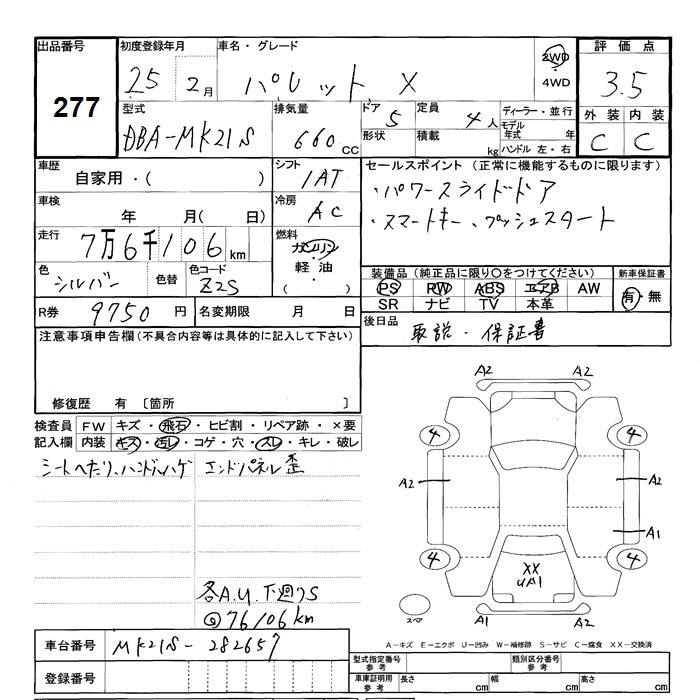 出品番号 277
初度登録年月 25 2月
車名・グレード パレット X
2WD 4WD
評価点 3.5
外装 C 内装 C
型式 DBA-MK21S
排気量 660 cc
ドア 5 形状
定員 4人 積載 kg
ディーラー・並行
モデル年式 年
ハンドル 左・右
車歴 自家用・( )
シフト IAT
セールスポイント (正常に機能するものに限ります)
・パワースライドドア
・スマートキー、プッシュスタート
車検 年 月( 日)
冷房 AC
走行 7万6千106km
燃料 ガソリン 軽油・( )
色 シルバー 色替 色コード Z2S
装備品(純正品に限り〇をつけてください)
PS PW ABS エアB AW
SR ナビ TV 本革
新車保証書 有・無
R券 9750円 名変期限 月 日
後日品 取説・保証書
注意事項申告欄(不具合内容等は具体的に記入して下さい)
修復歴 有 〔箇所 〕
検査員記入欄
FW キズ・飛石・ヒビ割・リペア跡・×要
内装 キズ・汚レ・コゲ・穴・スレ・キレ・破レ
シートヘたり、ハンドルハゲ エンドパネル歪
各A.U、下廻りS
@76106km
A2 A2
4 4
A2 A2
A1
4 4
XX
UA1
スペア A1 A2
A-キズ E-エクボ U-凹み W-補修跡 S-サビ C-腐食 XX-交換済
車台番号 MK21S-282657
登録番号
型式指定番号 参考 類別区分番号 参考
車庫証明用 参考 長さ cm 幅 cm 高さ cm